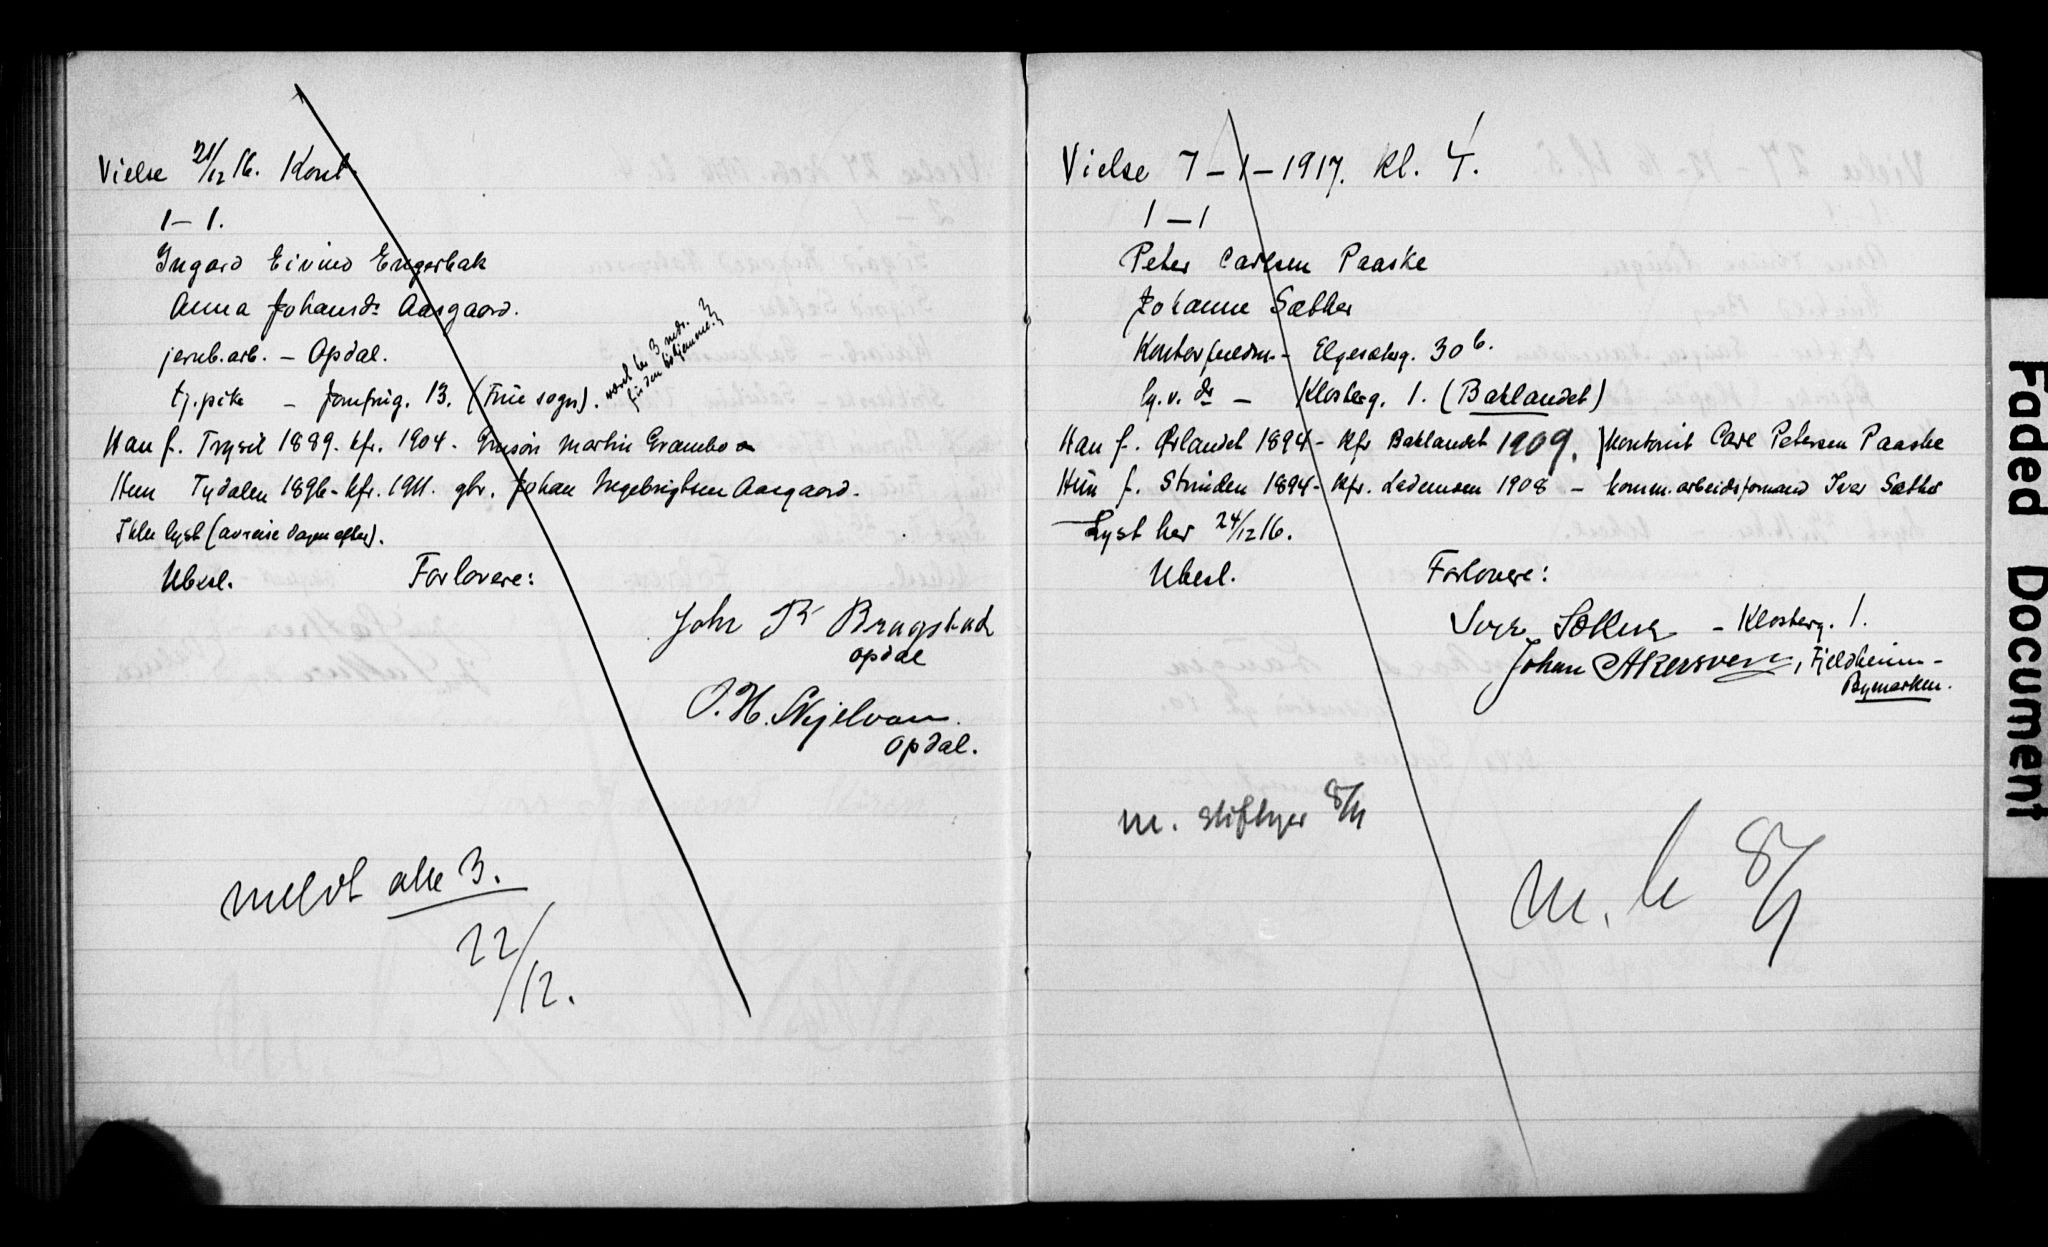 Vielse 21/12 16. Kont.
1 – 1.
Ingard Eivind Engerbak
Anna Johansdr Aasgaard.
jernb.arb. – Opdal.
tj.pike – Jomfrug. 13. (Frue sogn). været her 3 mdr.
før den tid hjemme.
Han f. Trysil 1889. kfr. 1904. Martin Grambo
Hun Tydalen 1896 – kfr. 1911. gbr. Johan Ingebrigtsen Aasgaard.
Ikke lyst (avreise dagen efter).
Ubesl. Forlovere:
John Bragstad
Opdal
O. H. Skjelvan.
Opdal.
meldt alle 3.
22/12.
Vielse 7 – 1 – 1917. kl. 4.
1 – 1
Peter Carlsen Paaske
Johanne Sæther
Kontorfuldm. – Elgesæterg. 30 b.
hj.v. dr – Klosterg. 1. (Baklandet)
Han f. Ørlandet 1894 – kfr Baklandet 1909. kontorist Carl Petersen Paaske
Hun f. Strinden 1894 – kfr. Lademoen 1908 – komm.arbeidsformand Iver Sæther
Lyst her 24/12 16.
Ubesl. Forlovere:
Iver Sæther – Klosterg. 1.
Johan Akersveen, Fjeldheim –
Bymarken.
m. skiftyer 8/1
m. 8/1
Faded Document